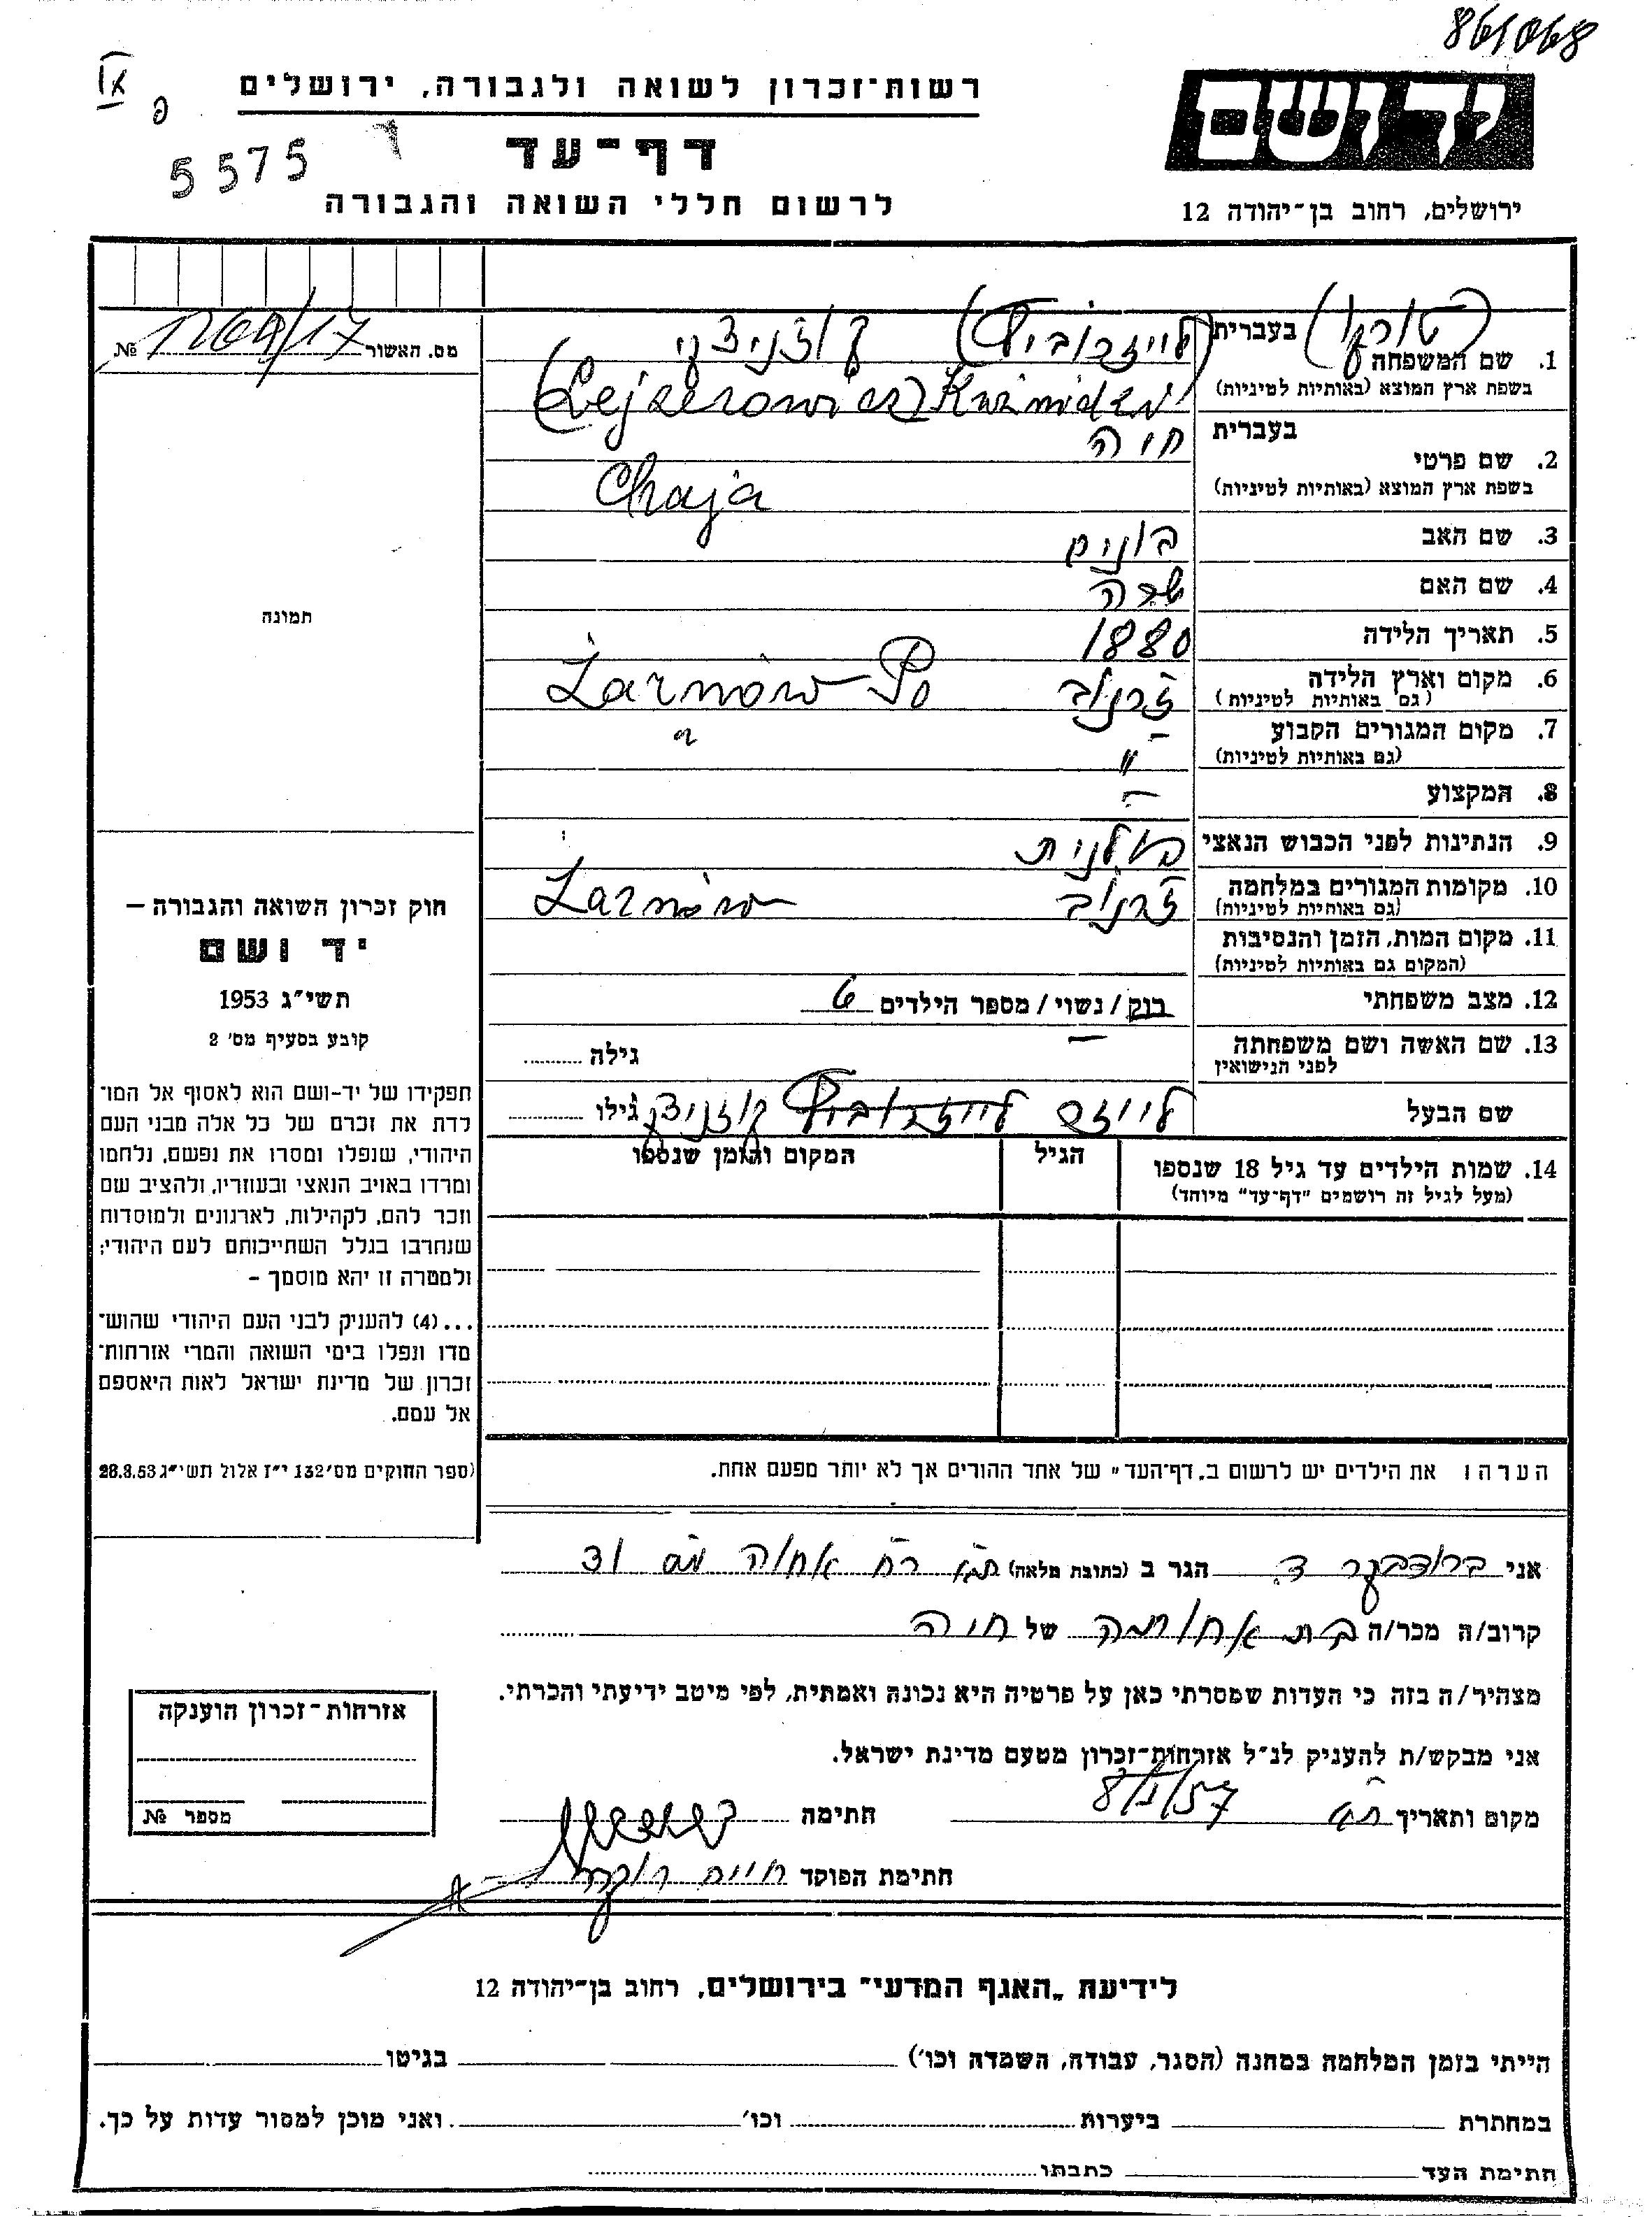 861068
IX
פ
רשות־זכרון לשואה ולגבורה, ירושלים
ידושם
5575
דף־עד
לרשום חללי השואה והגבורה
ירושלים, רחוב בן־יהודה 12
מס. האשור № 1769/17
1. שם המשפחה בעברית (לייזרוביץ) קוזניצקי
בשפת ארץ המוצא (באותיות לטיניות) (Lejzerowicz)
2. שם פרטי בעברית חיה
בשפת ארץ המוצא (באותיות לטיניות) Chaja
3. שם האב בונים
4. שם האם שרה
5. תאריך הלידה 1880
6. מקום וארץ הלידה זרנוב Żarnów Po
(גם באותיות לטיניות)
7. מקום המגורים הקבוע — "
(גם באותיות לטיניות) "
8. המקצוע —
9. הנתינות לפני הכבוש הנאצי פולנית
10. מקומות המגורים במלחמה זרנוב Żarnów
(גם באותיות לטיניות)
11. מקום המות, הזמן והנסיבות
(המקום גם באותיות לטיניות)
12. מצב משפחתי רוק / נשוי / מספר הילדים 6
13. שם האשה ושם משפחתה — גילה
לפני הנישואין
שם הבעל לייזר לייזרוביץ קוזניצקי גילו
14. שמות הילדים עד גיל 18 שנספו הגיל המקום והזמן שנספו
(מעל לגיל זה רושמים "דף־עד" מיוחד)
תמונה
חוק זכרון השואה והגבורה —
יד ושם
תשי"ג 1953
קובע בסעיף מס' 2
תפקידו של יד-ושם הוא לאסוף אל המו־
לדת את זכרם של כל אלה מבני העם
היהודי, שנפלו ומסרו את נפשם, נלחמו
ומרדו באויב הנאצי ובעוזריו, ולהציב שם
וזכר להם, לקהילות, לארגונים ולמוסדות
שנחרבו בגלל השתייכותם לעם היהודי;
ולמטרה זו יהא מוסמך —
...(4) להעניק לבני העם היהודי שהוש־
מדו ונפלו בימי השואה והמרי אזרחות־
זכרון של מדינת ישראל לאות היאספם
אל עמם.
(ספר החוקים מס' 132 י"ז אלול תשי"ג 28.8.53)
הערה: את הילדים יש לרשום ב„דף־העד" של אחד ההורים אך לא יותר מפעם אחת.
אני ברודבקר ד. הגר ב (כתובת מלאה) ת"א רח' אחוה מס 31
קרוב/ה מכר/ה בת אחותה של חיה
מצהיר/ה בזה כי העדות שמסרתי כאן על פרטיה היא נכונה ואמתית, לפי מיטב ידיעתי והכרתי.
אני מבקש/ת להעניק לנ"ל אזרחות־זכרון מטעם מדינת ישראל.
מקום ותאריך ת"א 8/1/57 חתימה
חתימת הפוקד חיים
אזרחות־זכרון הוענקה
מספר №
לידיעת „האגף המדעי" בירושלים, רחוב בן־יהודה 12
הייתי בזמן המלחמה במחנה (הסגר, עבודה, השמדה וכו') בגיטו
במחתרת ביערות וכו' ואני מוכן למסור עדות על כך.
חתימת העד כתבתו